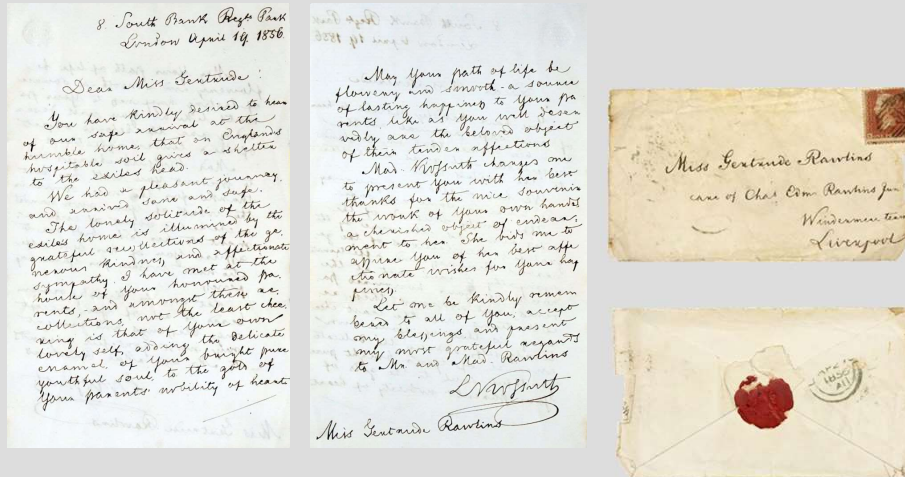 8. South Bank Regts Park
London April 19. 1856
Dear Miss Gertrude!
You have kindly desired to hear
of our safe arrival at the
humble home, that on Englands
hospitable soil gives a shelter
to the exiles head.
We had a pleasant journey
and arrived sane and safe.
The lonely solitude of the
exiles home is illumined by the
grateful recollections of the ge.
nerous kindness, and affectionate
sympathy I have met at the
house of your honoured pa.
rents,- and amongst these re.
collections, not the least chee.
ring is that of your own
lovely self, adding the delicate
enamel of your bright pure
youthful soul to the gold of
your parents nobility of heart
May your path of life be
flowery and smooth - a source
of lasting happiness to your pa
rents, like as you well deser
vedly are the beloved object
of their tender affections
Mad. Kossuth charges me
to present you with her best
thanks for the nice souvenir
the work of your own hands
a cherished object of endear.
ment to her. She bids me to
assure you of her best affe
ctionate wishes for your hap
piness.
Let me be kindly remem
bered to all of you, accept
my blessings and present
my most grateful regards
to Mr. and Mad. Rawlins
LKossuth
Miss Gertrude Rawlins
Miss Gertrude Rawlins
care of Chas Edm. Rawlins Jun
Windermere
Liverpool